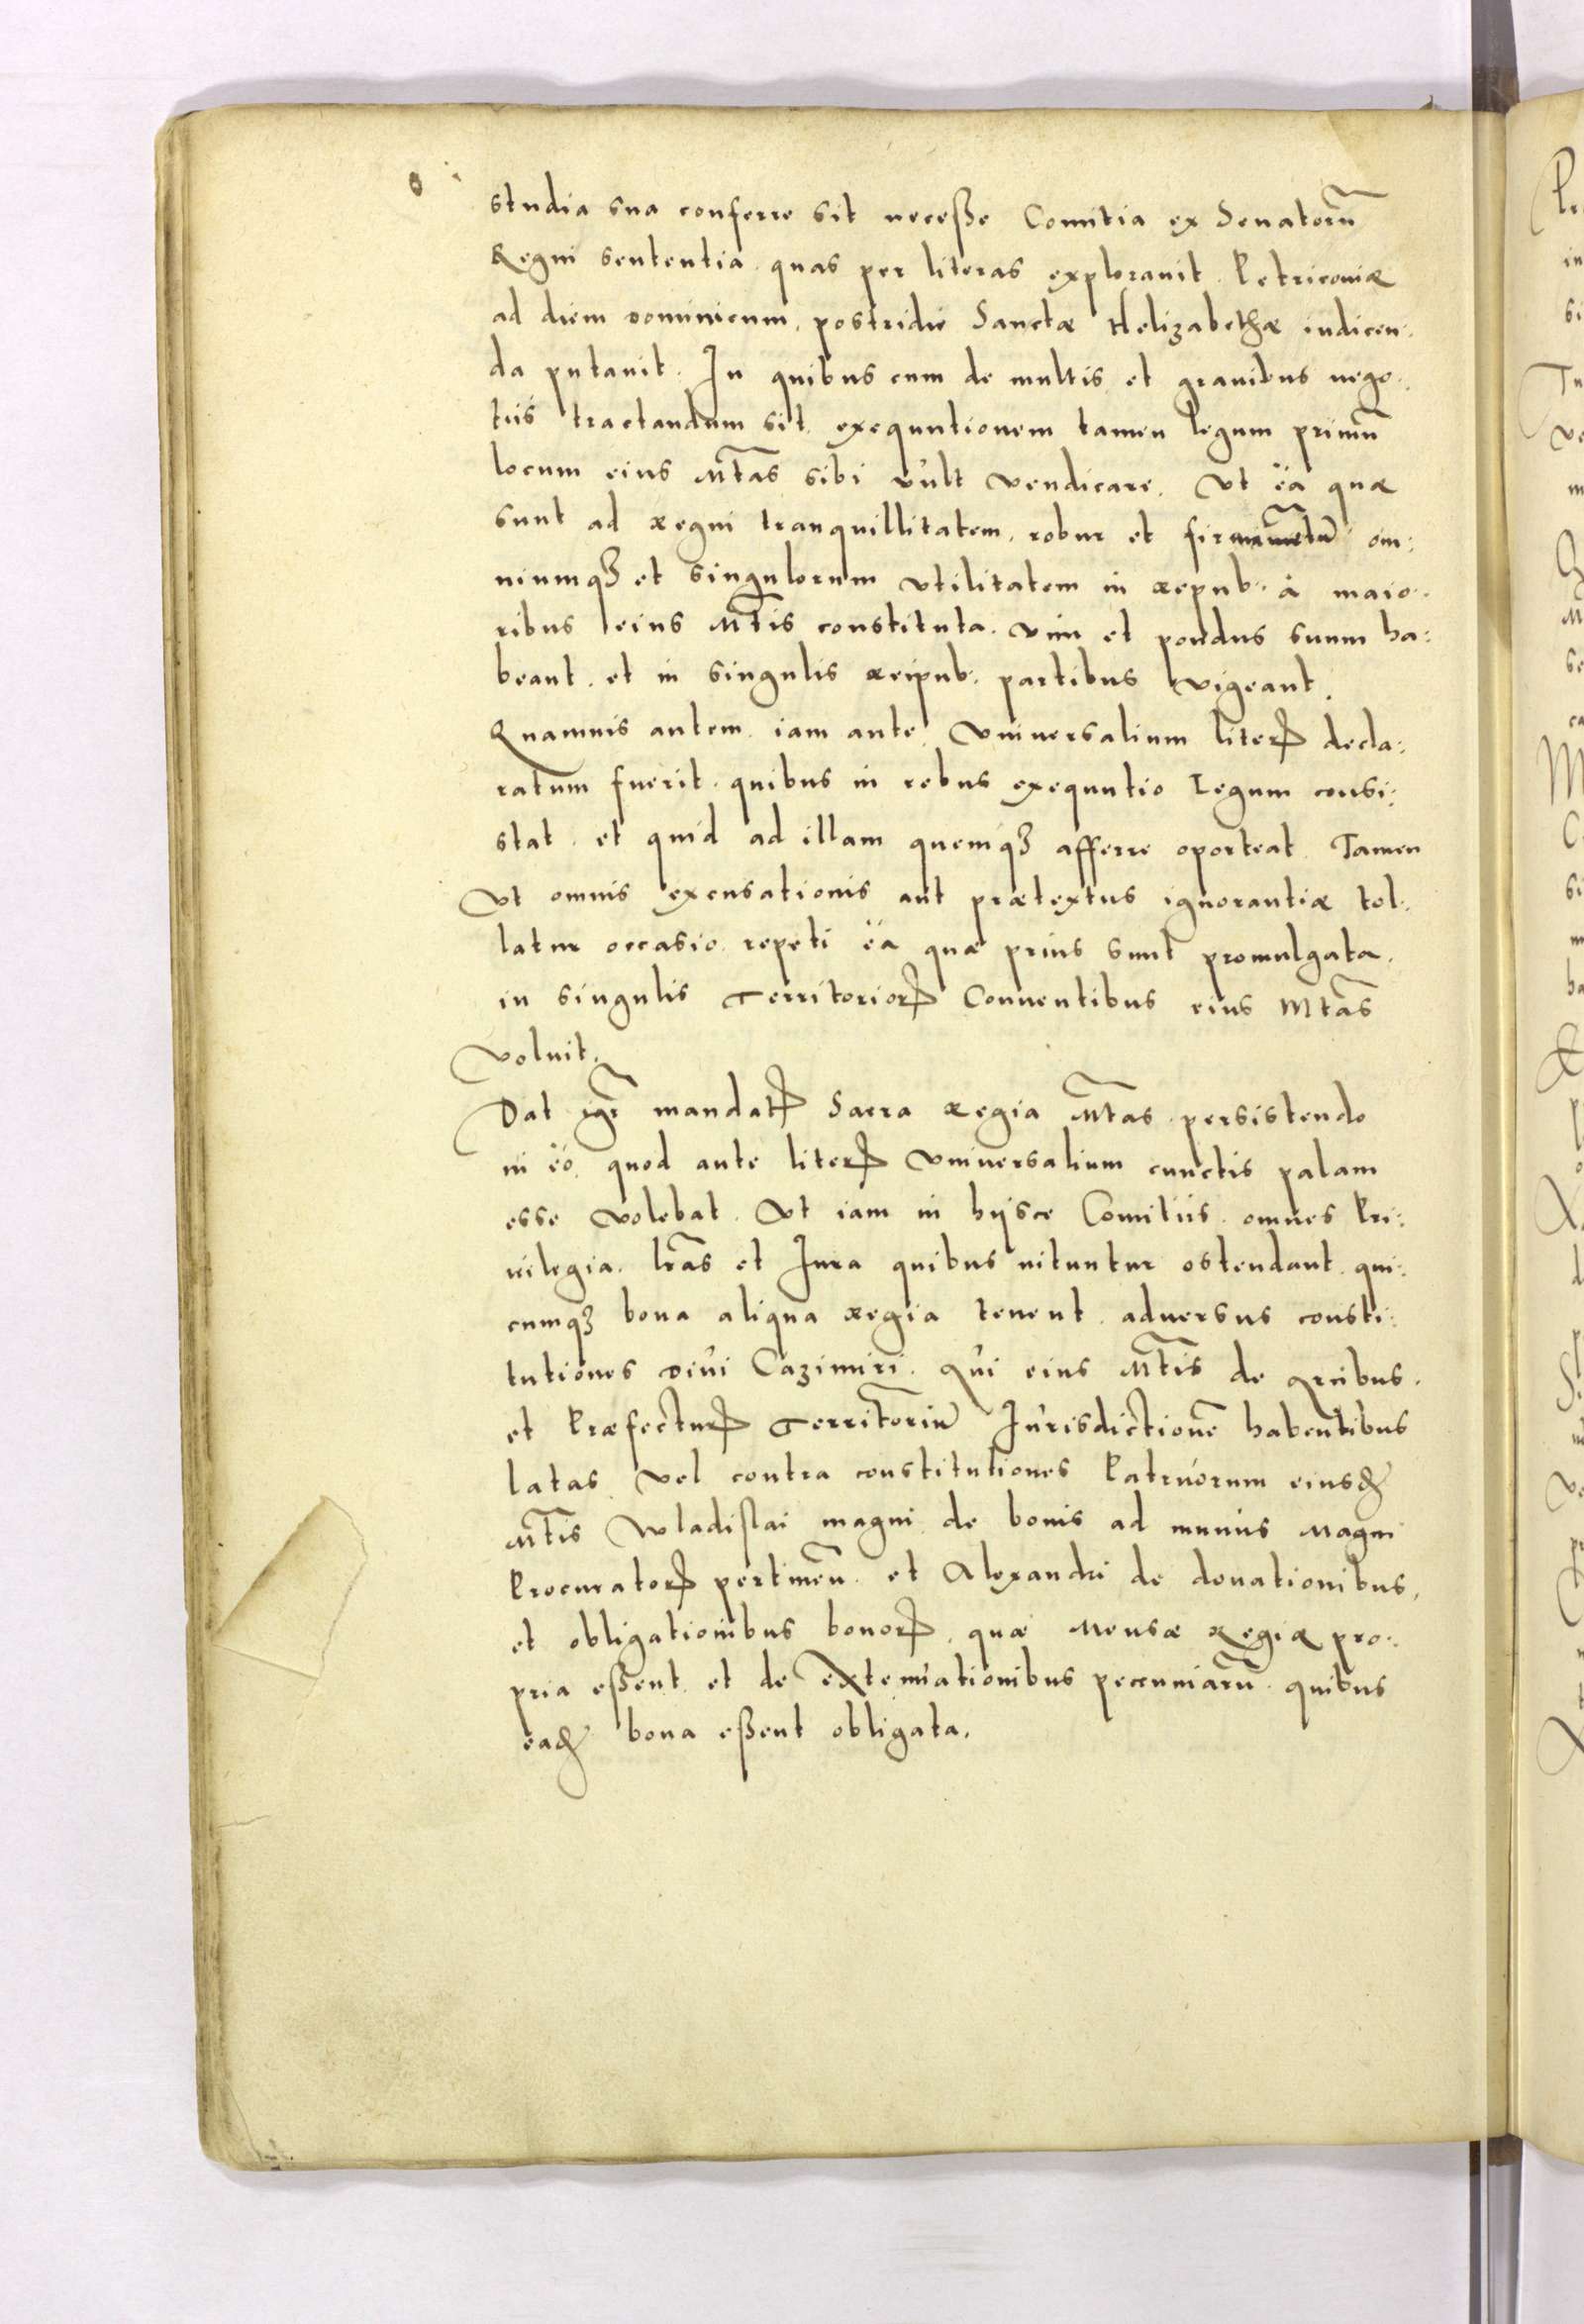 studia sua conferre sit neceße Comitia ex Senatorũ
Regni sententia. quas per literas explorauit. Petricouiæ
ad diem dominicum, postridie Sanctæ Helizabethæ indicen:
da putauit. In quibus cum de multis et grauibus nego:
tiis tractandum sit. exequutionem tamen legum primũ
locum eius Mtãs sibi vult vendicare. Vt ëa quæ
sunt ad Regni tranquillitatem, robur et om:
niumqȝ et singulorum vtilitatem in Repub. à maio:
ribus eius Mtĩs constituta. vim et pondus suum ha:
beant. et in singulis Reipub. partibus vigeant.
Quamuis autem iam ante Vniuersalium literꝝ decla:
ratum fuerit. quibus in rebus exequutio Legum consi:
stat. et quid ad illam quemqȝ afferre oporteat. Tamen
Vt omnis excusationis aut prætextus ignorantiæ tol:
latur occasio. repeti ëa quæ prius sunt promulgata.
in singulis Territoriorꝝ Conuentibus eius Mtãs
voluit.
Dat igr̃ mandatꝝ Sacra Regia Mtãs. persistendo
in ëo. quod ante literꝝ Vniuersalium cunctis palam
esse volebat. Vt iam in hijsce Comitiis. omnes Pri:
uilegia. lrãs et Iura quibus nituntur ostendant. qui:
cumqȝ bona aliqua Regia tenent. aduersus consti:
tutiones diui Cazimiri. qui eius Mtĩs de arcibus.
et Præfecturꝝ Territoriũ Iurisdictionẽ habentibus
latas. vel contra constitutiones Patruorum eiusđ
Mtĩs Wladislai magni de bonis ad munus Magni
Procuratorꝝ pertineñ. et Alexandri de donationibus,
et obligationibus bonorꝝ. quæ Mensæ Regiæ pro:
pria eßent et de extenuationibus pecuniarũ quibus
eađ bona eßent obligata.